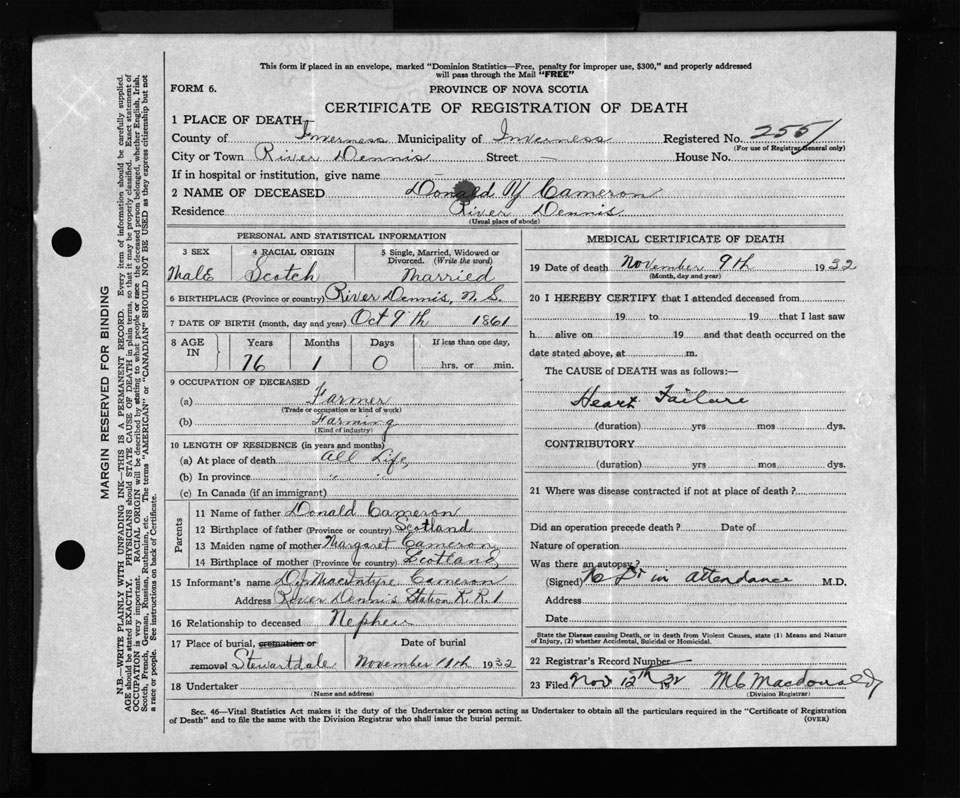 This form if placed in an envelope, marked "Dominion Statistics—Free, penalty for improper use, $300," and properly addressed
will pass through the Mail "FREE"
FORM 6.
PROVINCE OF NOVA SCOTIA
CERTIFICATE OF REGISTRATION OF DEATH
1 PLACE OF DEATH
County of Inverness Municipality of Inverness Registered No. 2551
(For use of Registrar General only)
City or Town River Dennis Street — House No.
If in hospital or institution, give name
2 NAME OF DECEASED Donald Cameron
Residence River Dennis
(Usual place of abode)
PERSONAL AND STATISTICAL INFORMATION
3 SEX 4 RACIAL ORIGIN 5 Single, Married, Widowed or
Divorced. (Write the word)
Male Scotch Married
6 BIRTHPLACE (Province or country) River Dennis, N.S.
7 DATE OF BIRTH (month, day and year) Oct 9th 1861
8 AGE IN Years Months Days If less than one day,
76 1 0 hrs. or min.
9 OCCUPATION OF DECEASED
(a) Farmer
(Trade or occupation or kind of work)
(b) Farming
(Kind of industry)
10 LENGTH OF RESIDENCE (in years and months)
(a) At place of death All Life
(b) In province " "
(c) In Canada (if an immigrant)
Parents
11 Name of father Donald Cameron
12 Birthplace of father (Province or country) Scotland
13 Maiden name of mother Margaret Cameron
14 Birthplace of mother (Province or country) Scotland
15 Informant's name D. J. MacIntyre Cameron
Address River Dennis Station R.R.1
16 Relationship to deceased Nephew
17 Place of burial, cremation or Date of burial
removal Stewartdale November 11th 1932
18 Undertaker
(Name and address)
MEDICAL CERTIFICATE OF DEATH
19 Date of death November 9th 1932
(Month, day and year)
20 I HEREBY CERTIFY that I attended deceased from
19 to 19 that I last saw
h alive on 19 and that death occurred on the
date stated above, at m.
The CAUSE of DEATH was as follows:—
Heart Failure
(duration) yrs mos dys.
CONTRIBUTORY
(duration) yrs mos dys.
21 Where was disease contracted if not at place of death?
Did an operation precede death? Date of
Nature of operation
Was there an autopsy?
(Signed) No Dr in attendance M.D.
Address
Date
State the Disease causing Death, or in death from Violent Causes, state (1) Means and Nature
of Injury, (2) whether Accidental, Suicidal or Homicidal.
22 Registrar's Record Number
23 Filed Nov 12th 32 M C Macdonald
(Division Registrar)
Sec. 46—Vital Statistics Act makes it the duty of the Undertaker or person acting as Undertaker to obtain all the particulars required in the "Certificate of Registration
of Death" and to file the same with the Division Registrar who shall issue the burial permit. (OVER)
MARGIN RESERVED FOR BINDING
N.B.—WRITE PLAINLY WITH UNFADING INK—THIS IS A PERMANENT RECORD. Every item of information should be carefully supplied.
AGE should be stated EXACTLY. PHYSICIANS should STATE CAUSE OF DEATH in plain terms, so that it may be properly classified. Exact statement of
OCCUPATION is very important. RACIAL ORIGIN will be described by stating to what people or race the deceased person belonged, whether English, Irish,
Scotch, French, German, Russian, Ruthenian, etc. The terms "AMERICAN" or "CANADIAN" SHOULD NOT BE USED as they express citizenship but not
a race or people. See instructions on back of Certificate.